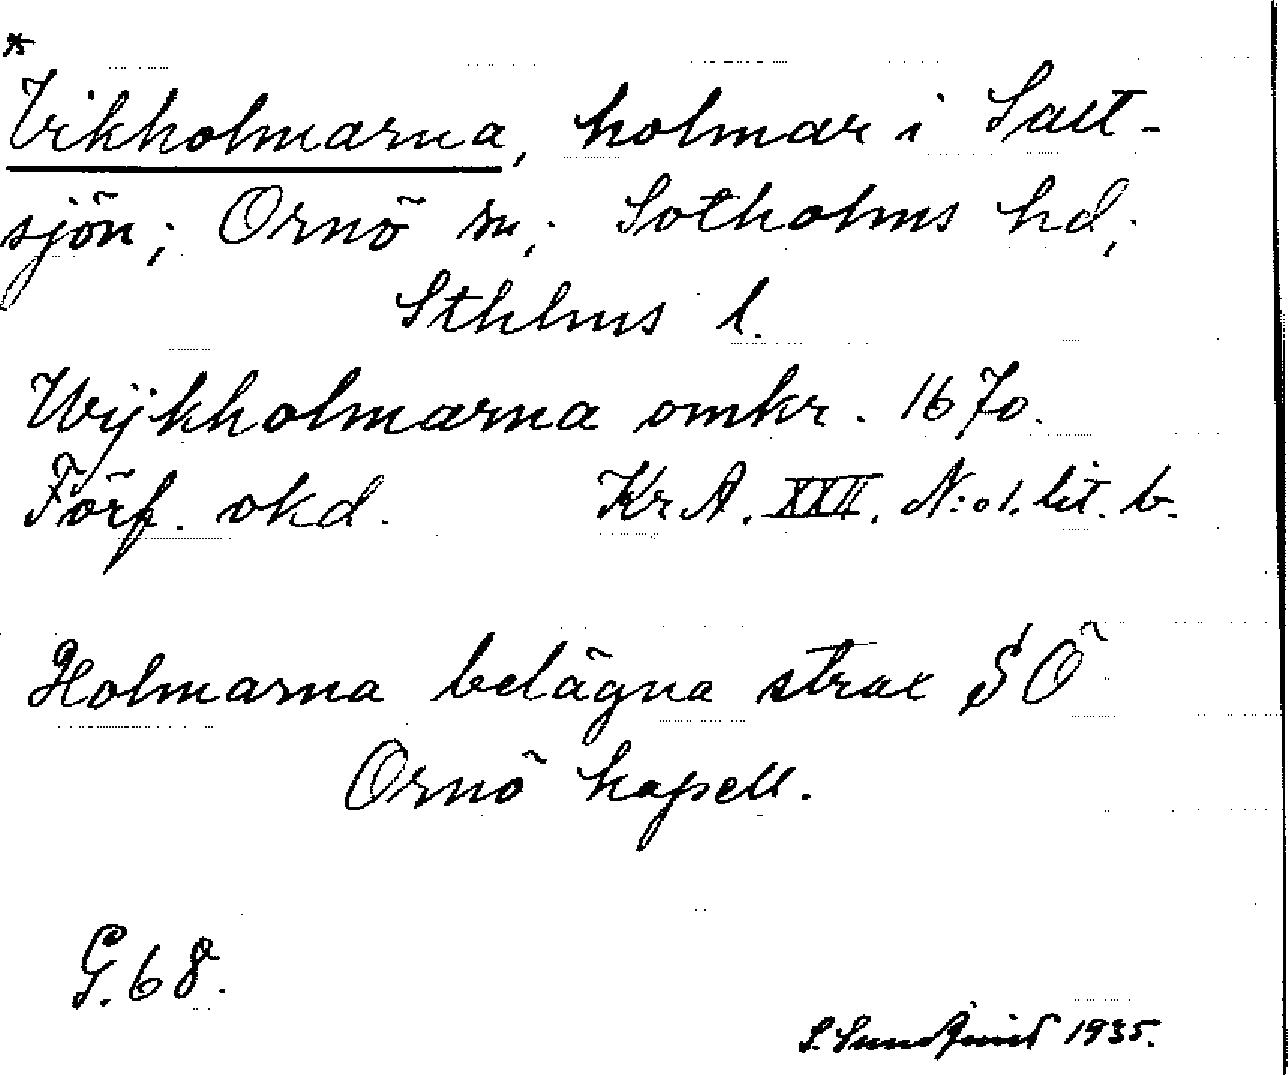 *
Vikholmarna, holmar i Salt-
sjön; Ornö sn; Sotholms hd;
Sthlms l.
Wijkholmarna omkr. 1670.
Förf. okd. Kr A. XXII. N:o 1. lit. b.
Holmarna belägna strax SÖ
Ornö kapell.
G. 68.
S. Sundqvist 1935.